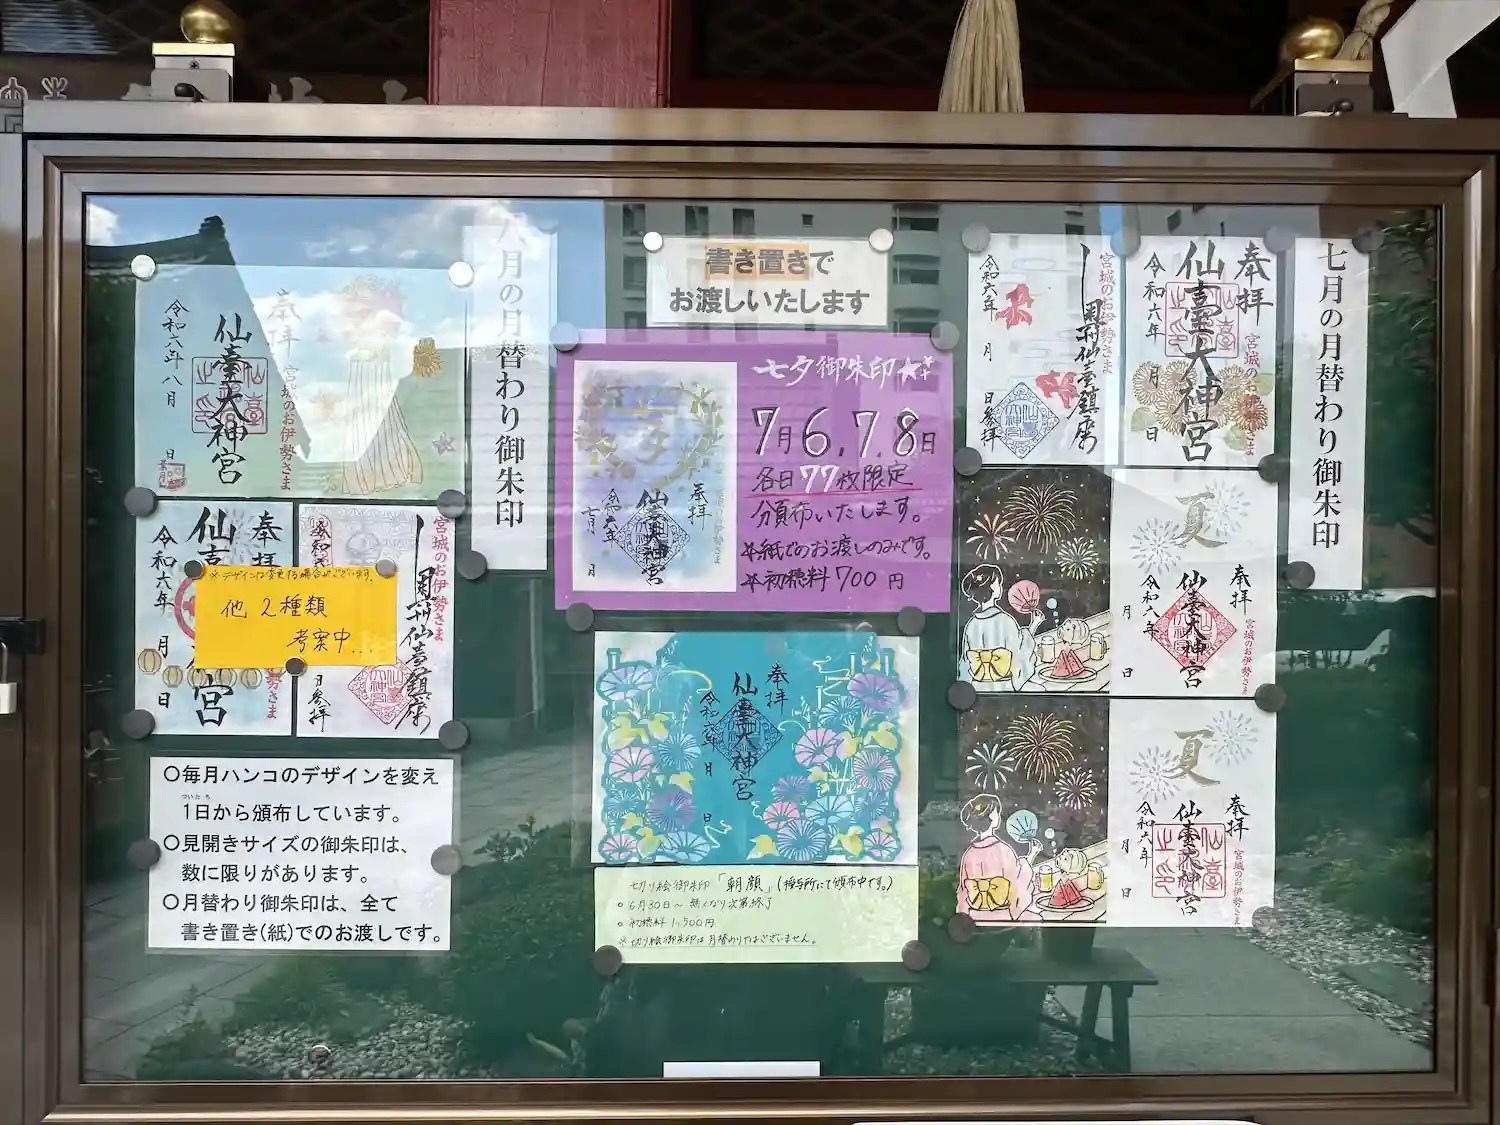 八月の月替わり御朱印
奉拝
宮城のお伊勢さま
仙臺大神宮
令和六年八月
日
奉拝
宮
令和六年
月
日
宮城のお伊勢さま
奥州仙臺鎮座
日参拝
※デザインは変更する場合がございます。
他2種類
考案中...
○毎月ハンコのデザインを変え
ついたち
1日から頒布しています。
○見開きサイズの御朱印は、
数に限りがあります。
○月替わり御朱印は、全て
書き置き(紙)でのお渡しです。
書き置きで
お渡しいたします
七夕御朱印
7月6.7.8日
各日77枚限定
分頒布いたします。
紙でのお渡しのみです。
初穂料700円
奉拝
仙臺大神宮
令和六年
七月
奉拝
仙臺大神宮
令和六年
月
日
切り絵御朱印「朝顔」(授与所にて頒布中です。)
○6月30日~無くなり次第終了
○初穂料1,500円
※切り絵御朱印は月替わりではございません。
七月の月替わり御朱印
奉拝
宮城のお伊勢さま
仙臺大神宮
令和六年
月
日
宮城のお伊勢さま
奥州仙臺鎮座
令和六年
月
日参拝
夏
奉拝
宮城のお伊勢さま
仙臺大神宮
月
日
夏
奉拝
宮城のお伊勢さま
仙臺大神宮
令和六年
月
日